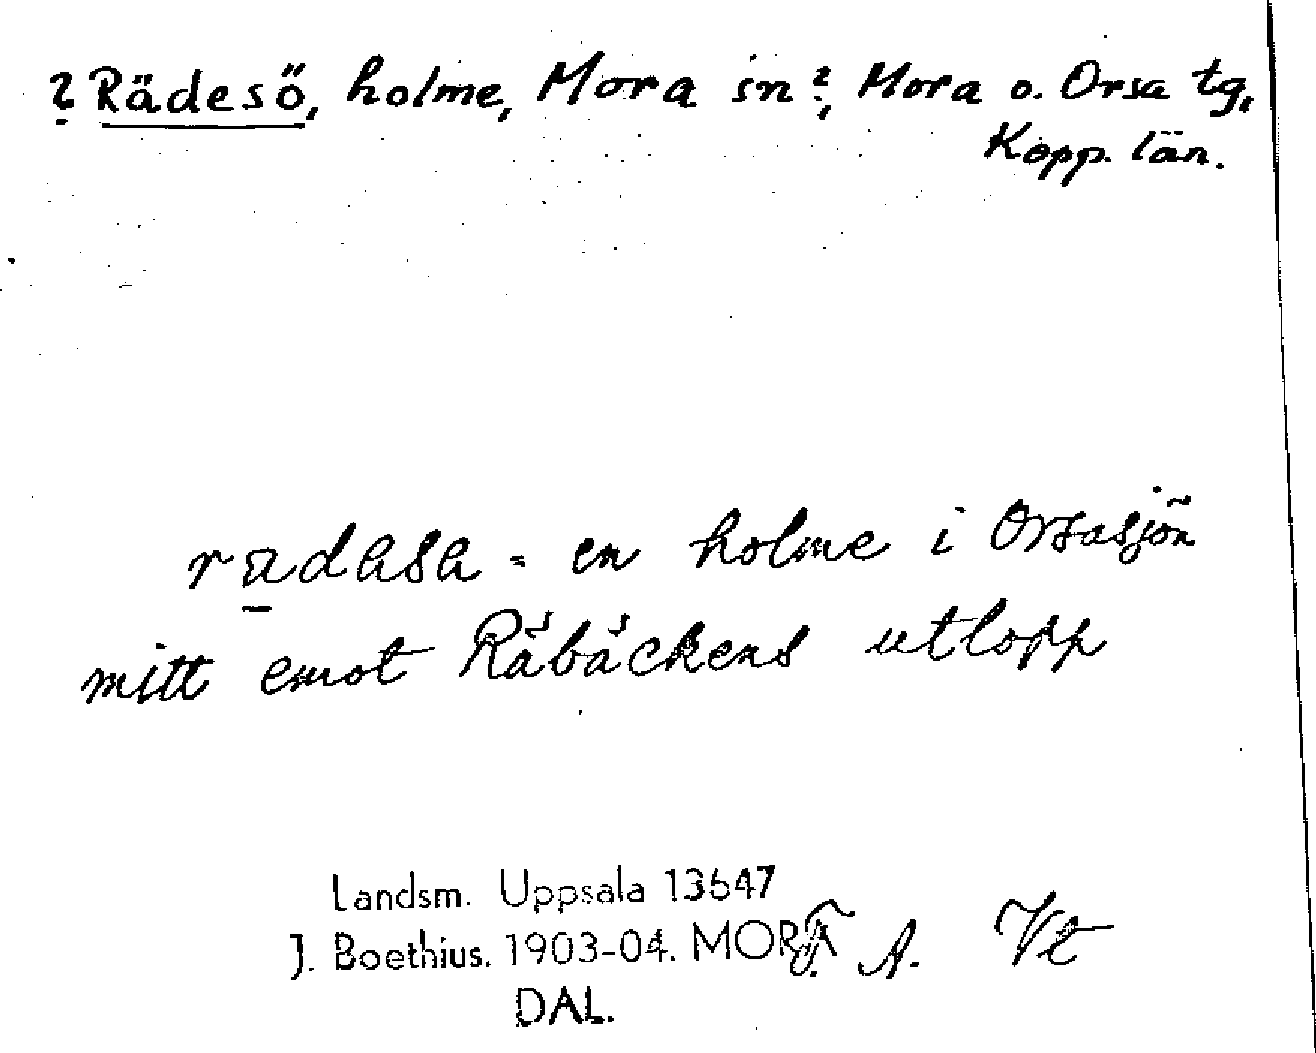 ? Rädesö, holme, Mora sn?, Mora o. Orsa tg,
Kopp. län.
radasa = en holme i Orsasjön
mitt emot Råbäckens utlopp
Landsm. Uppsala 13647
J. Boethius. 1903-04. MORA
DAL.